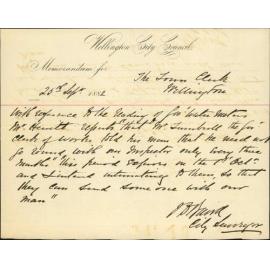 Wellington City Council
Memorandum for
The Town Clerk
Wellington
25th Septr 1882
With reference to the reading of for Water Meters
Mr. Hewitt reports that Mr. the for
Clerk of Works told his man that he need not
go round with our Inspector only every three
months. This period expires on the 1st Octr
and I intend intimating to them, so that
they can send some one with our
man"
City Surveyor